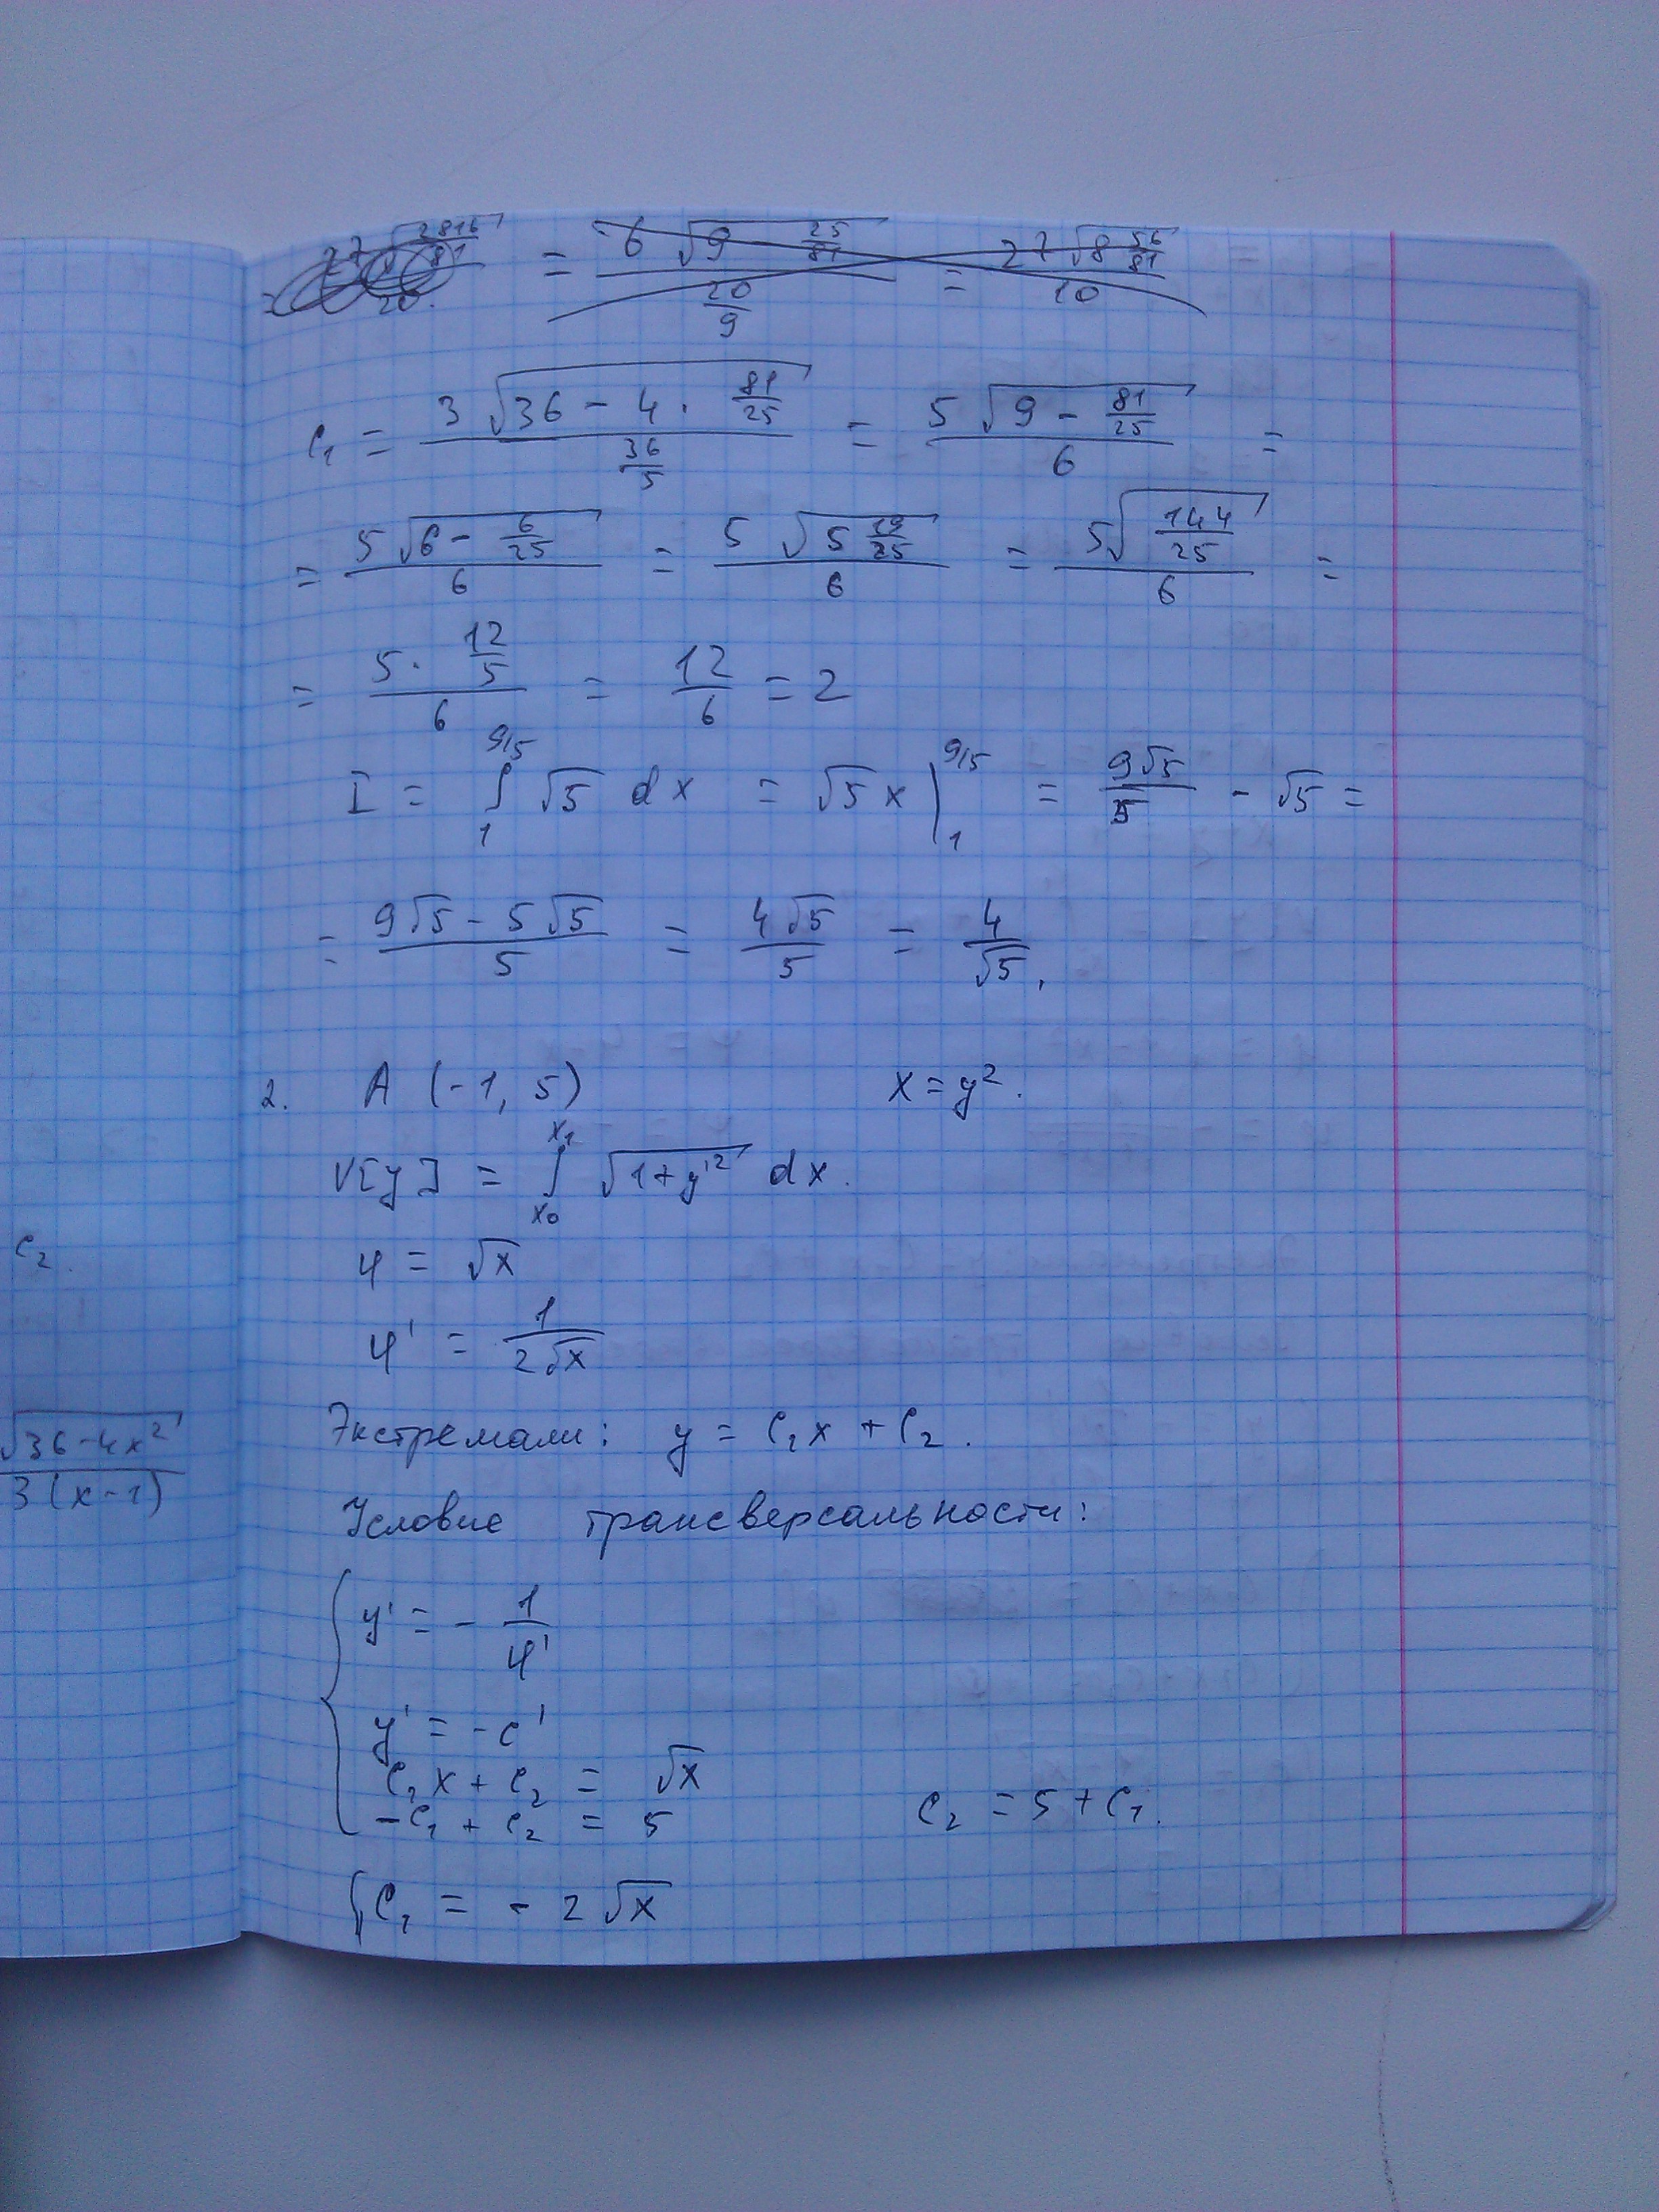 = 6 √(9 - 25/81) / (20/9) = 27 √(8 56/81) / 10
C₁ = 3 √(36 - 4 · 81/25) / (36/5) = 5 √(9 - 81/25) / 6 =
= 5 √(6 - 6/25) / 6 = 5 √(5 19/25) / 6 = 5 √(144/25) / 6 =
= 5 · 12/5 / 6 = 12/6 = 2
I = ∫₁^(9/5) √5 dx = √5 x |₁^(9/5) = 9√5/5 - √5 =
= (9√5 - 5√5)/5 = 4√5/5 = 4/√5.
2. A (-1, 5) x = y².
V[y] = ∫_(x₀)^(x₁) √(1+y'²) dx.
φ = √x
C₂.
φ' = 1/(2√x)
Экстремали: y = C₁x + C₂.
√(36-4x²) / 3(x-1)
Условие трансверсальности:
{ y' = - 1/φ'
y' = -c'
C₁x + C₂ = √x
-C₁ + C₂ = 5 C₂ = 5 + C₁.
{ C₁ = - 2√x